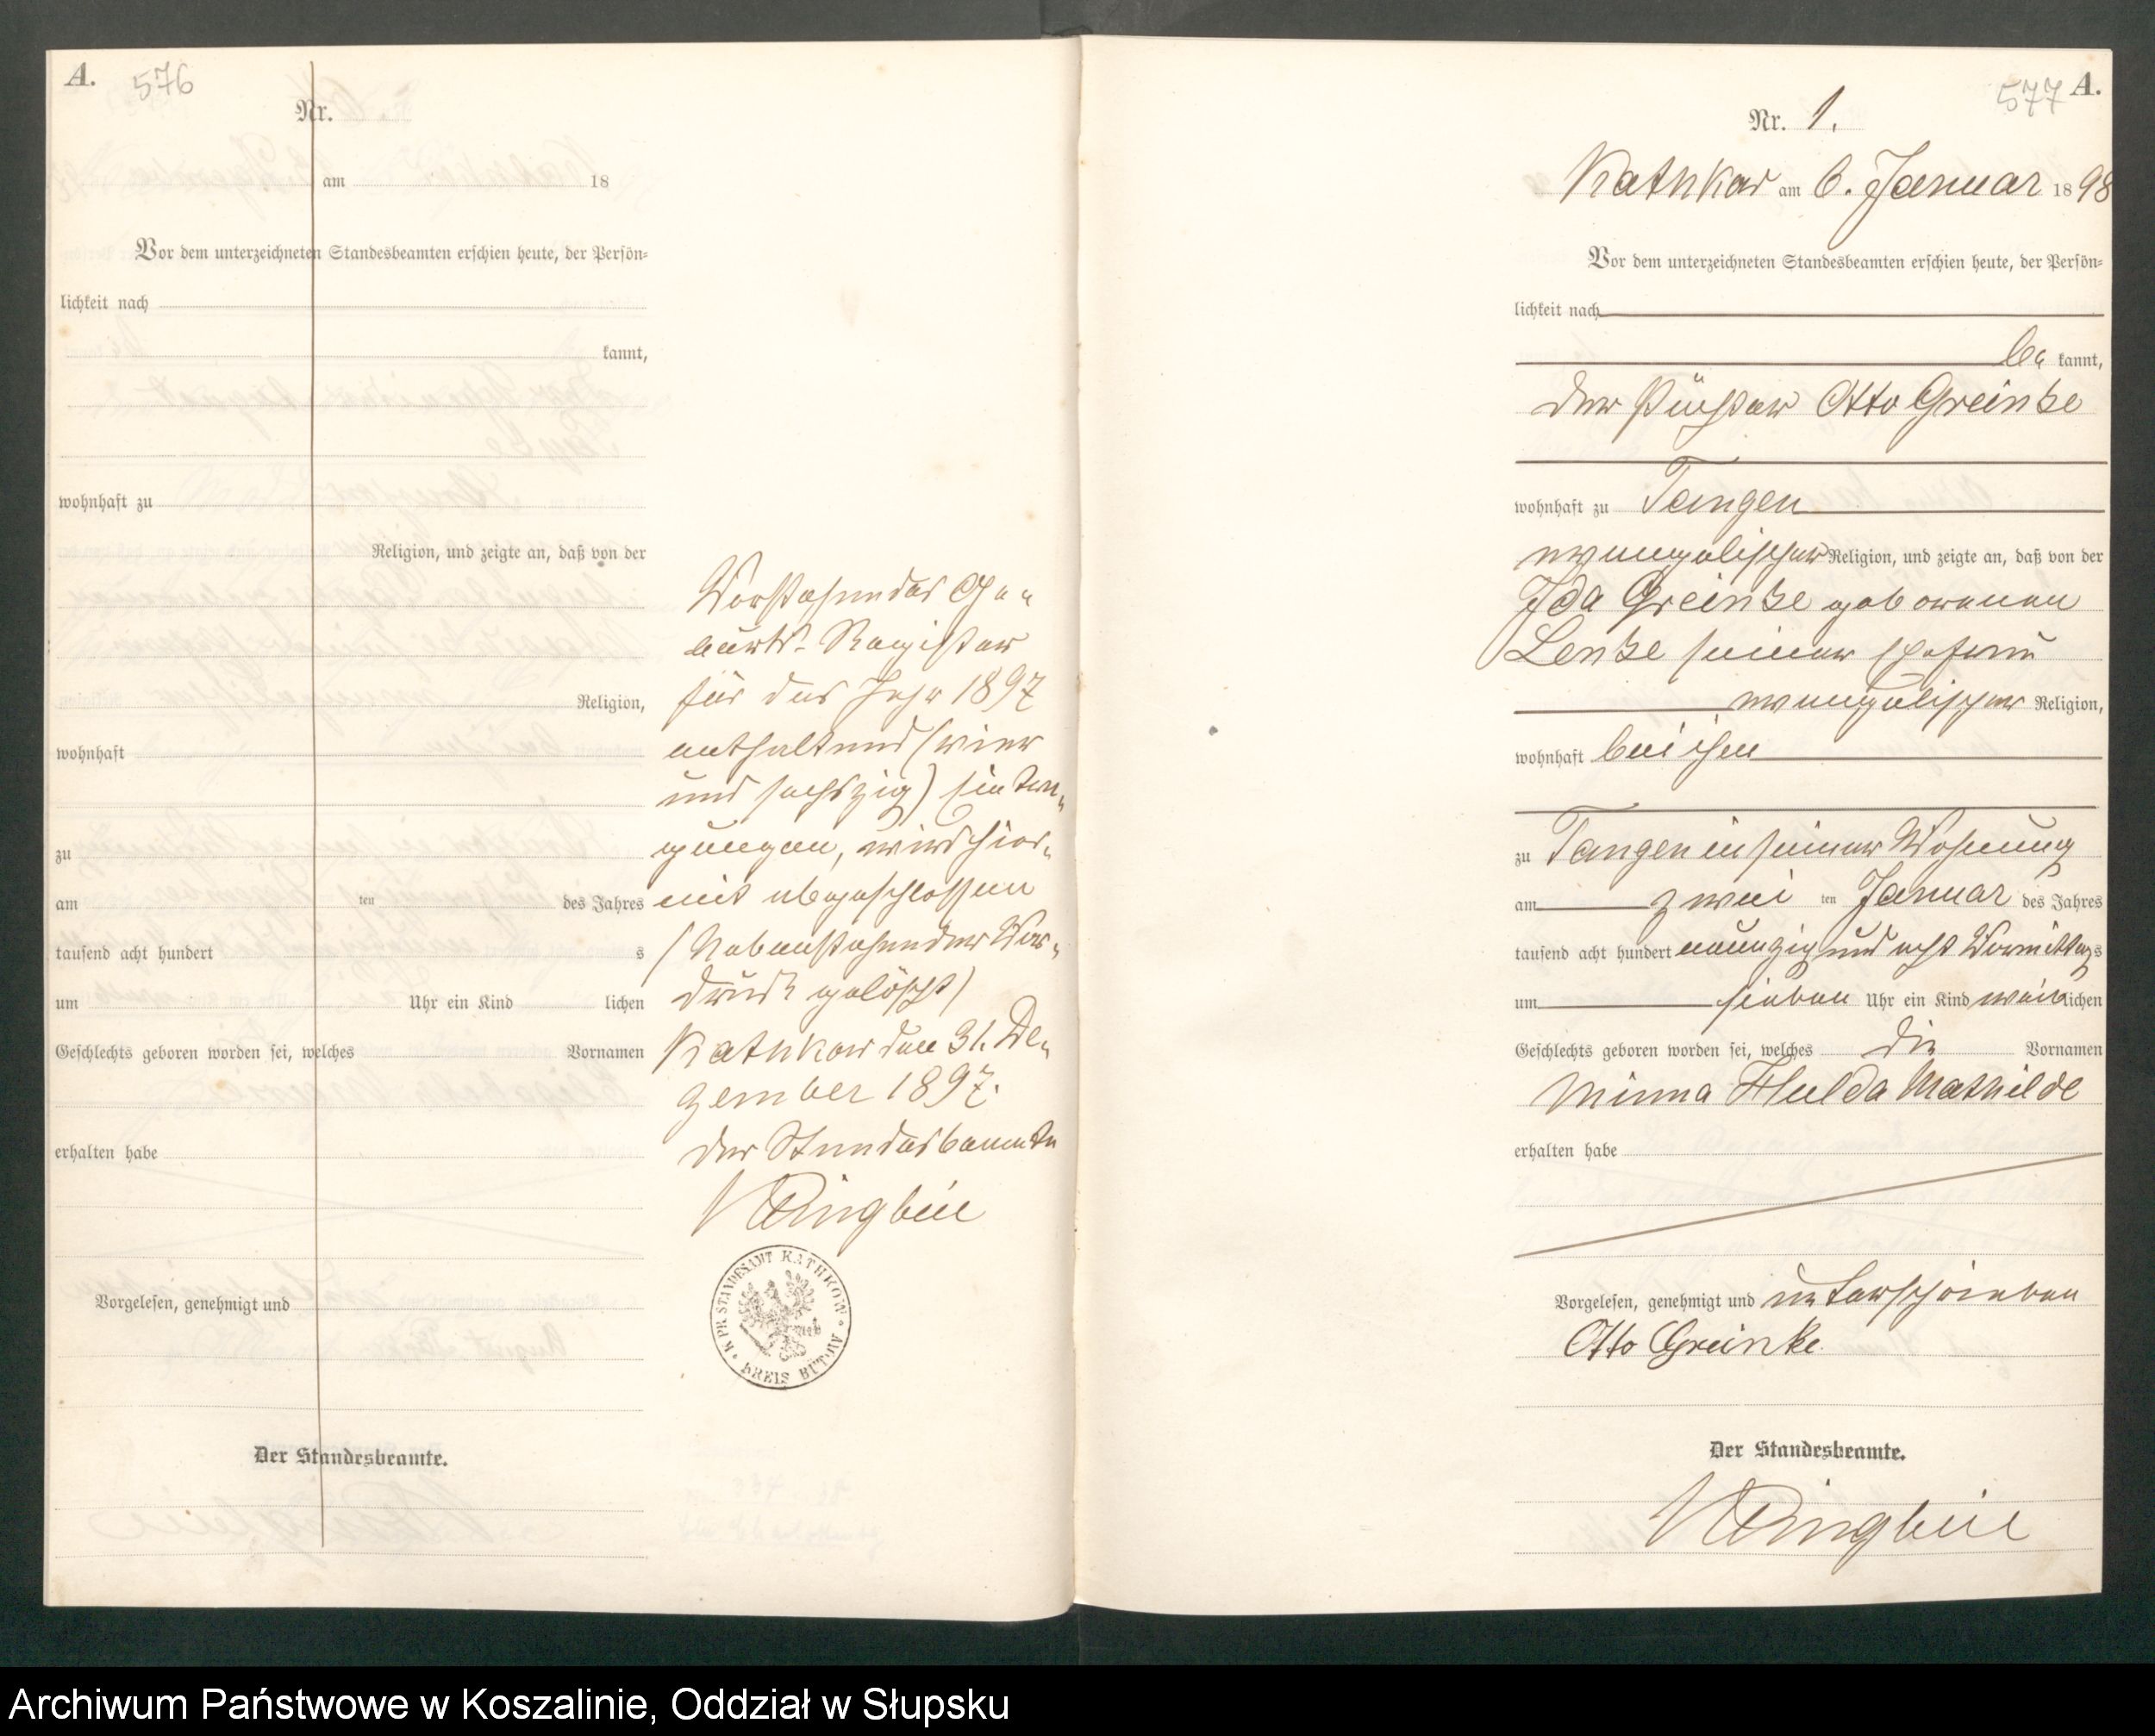 A. 576
Nr.
am 18
Vor dem unterzeichneten Standesbeamten erschien heute, der Persön-
lichkeit nach
kannt,
wohnhaft zu
Religion, und zeigte an, daß von der
Religion,
wohnhaft
zu
am ten des Jahres
tausend acht hundert s
um Uhr ein Kind lichen
Geschlechts geboren worden sei, welches Vornamen
erhalten habe
Vorgelesen, genehmigt und
Der Standesbeamte.
Vorstehendes Ge-
burts-Register
für das Jahr 1897
enthaltend (vier
und sechszig) Eintra-
gungen, wird hier-
mit abgeschlossen
(Nebenstehender Vor-
druck gelöscht)
Kathkow den 31. De-
zember 1897.
Der Standesbeamte
K. PR. STANDESAMT KATHKOW
KREIS BÜTOW
577 A.
Nr. 1.
Kathkow am 6. Januar 1898
Vor dem unterzeichneten Standesbeamten erschien heute, der Persön-
lichkeit nach
be kannt,
der Otto Greinke
wohnhaft zu Tangen
evangelischer Religion, und zeigte an, daß von der
Ida Greinke geborenen
Lenke seiner Ehefrau
evangelischer Religion,
wohnhaft bei ihm
zu Tangen in seiner Wohnung
am zwei ten Januar des Jahres
tausend acht hundert neunzig und acht Vormittags
um sieben Uhr ein Kind weiblichen
Geschlechts geboren worden sei, welches die Vornamen
Minna Hulda Mathilde
erhalten habe
Vorgelesen, genehmigt und unterschrieben
Otto Greinke.
Der Standesbeamte.
Archiwum Państwowe w Koszalinie, Oddział w Słupsku